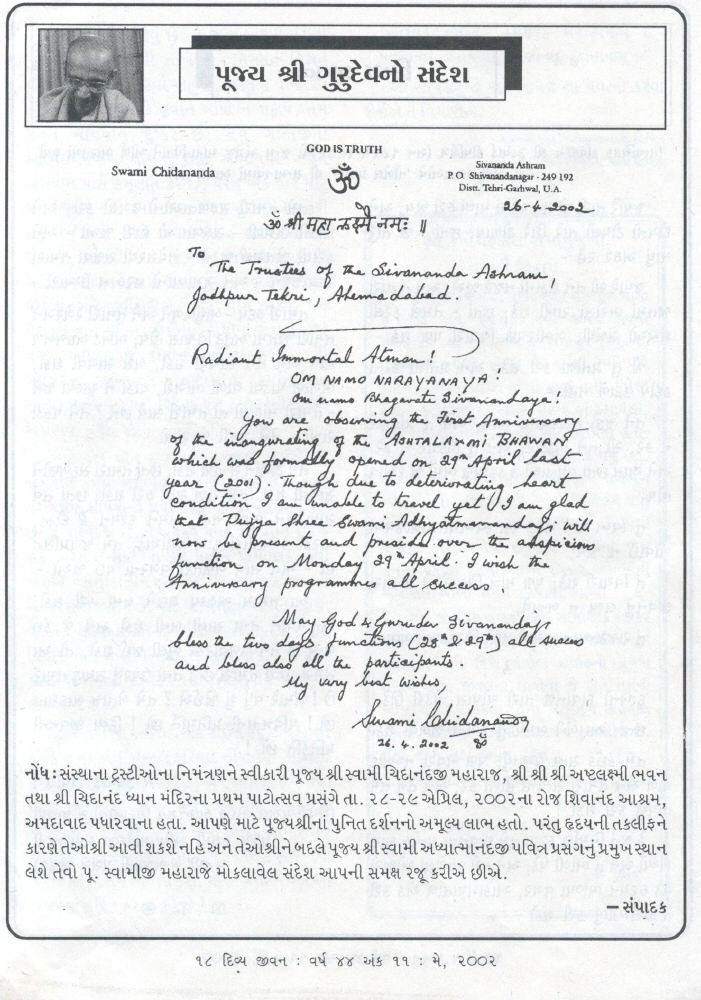 પૂજ્ય શ્રી ગુરુદેવનો સંદેશ
GOD IS TRUTH
Swami Chidananda
ॐ
Sivananda Ashram
P. O. Shivanandanagar - 249 192
Distt. Tehri-Garhwal, U.A.
26-4-2002
ॐ श्री महा लक्ष्म्यै नमः ॥
To
The Trustees of the Sivananda Ashram
Jodhpur Tekri, Ahemadabad.
Radiant Immortal Atman!
OM NAMO NARAYANAYA!
Om namo Bhagavate Sivanandaya!
You are observing the First Anniversary
of the inaugurating of the ASHTALAXMI BHAWAN
which was formally opened on 29th April last
year (2001). Though due to deteriorating heart
condition I am unable to travel yet I am glad
that Pujya Shree Swami Adhyatmanandaji will
now be present and preside over the auspicious
function on Monday 29th April. I wish the
Anniversary programmes all success.
May God & Gurudev Sivanandaji
bless the two days functions (28th & 29th) all success
and bless also all the participants.
My very best wishes,
Swami Chidananda
26.4.2002 ॐ
નોંધ : સંસ્થાના ટ્રસ્ટીઓના નિમંત્રણને સ્વીકારી પૂજ્ય શ્રી સ્વામી ચિદાનંદજી મહારાજ, શ્રી શ્રી શ્રી અષ્ટલક્ષ્મી ભવન
તથા શ્રી ચિદાનંદ ધ્યાન મંદિરના પ્રથમ પાટોત્સવ પ્રસંગે તા. ૨૮-૨૯ એપ્રિલ, ૨૦૦૨ના રોજ શિવાનંદ આશ્રમ,
અમદાવાદ પધારવાના હતા. આપણે માટે પૂજ્યશ્રીનાં પુનિત દર્શનનો અમૂલ્ય લાભ હતો. પરંતુ હૃદયની તકલીફને
કારણે તેઓશ્રી આવી શકશે નહિ અને તેઓશ્રીને બદલે પૂજ્ય શ્રી સ્વામી અધ્યાત્માનંદજી પવિત્ર પ્રસંગનું પ્રમુખ સ્થાન
લેશે તેવો પૂ. સ્વામીજી મહારાજે મોકલાવેલ સંદેશ આપની સમક્ષ રજૂ કરીએ છીએ.
– સંપાદક
૧૮ દિવ્ય જીવન : વર્ષ ૪૪ અંક ૧૧ : મે, ૨૦૦૨